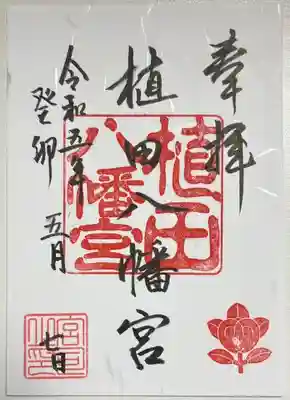 奉拝
植田八幡宮
令和五年
癸卯 五月
七日
植田
八幡宮